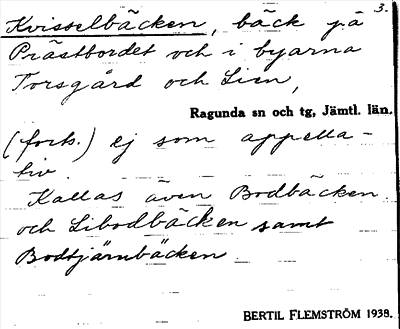 3.
Kvisselbäcken, bäck på
Prästbordet och i byarna
Torsgård och Lien,
Ragunda sn och tg, Jämtl. län.
(forts.) ej som appella-
tiv.
Kallas även Bodbäcken
och Libodbäcken samt
Bodtjärnbäcken.
BERTIL FLEMSTRÖM 1938.